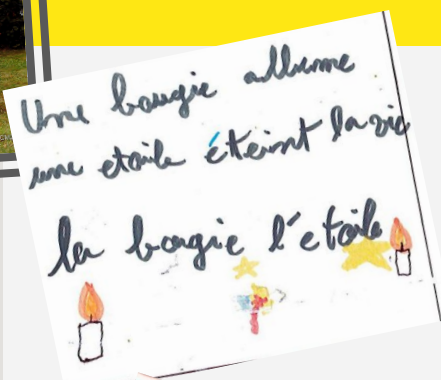 Une bougie allume
une etoile éteint la vie
la bogie l'etoile